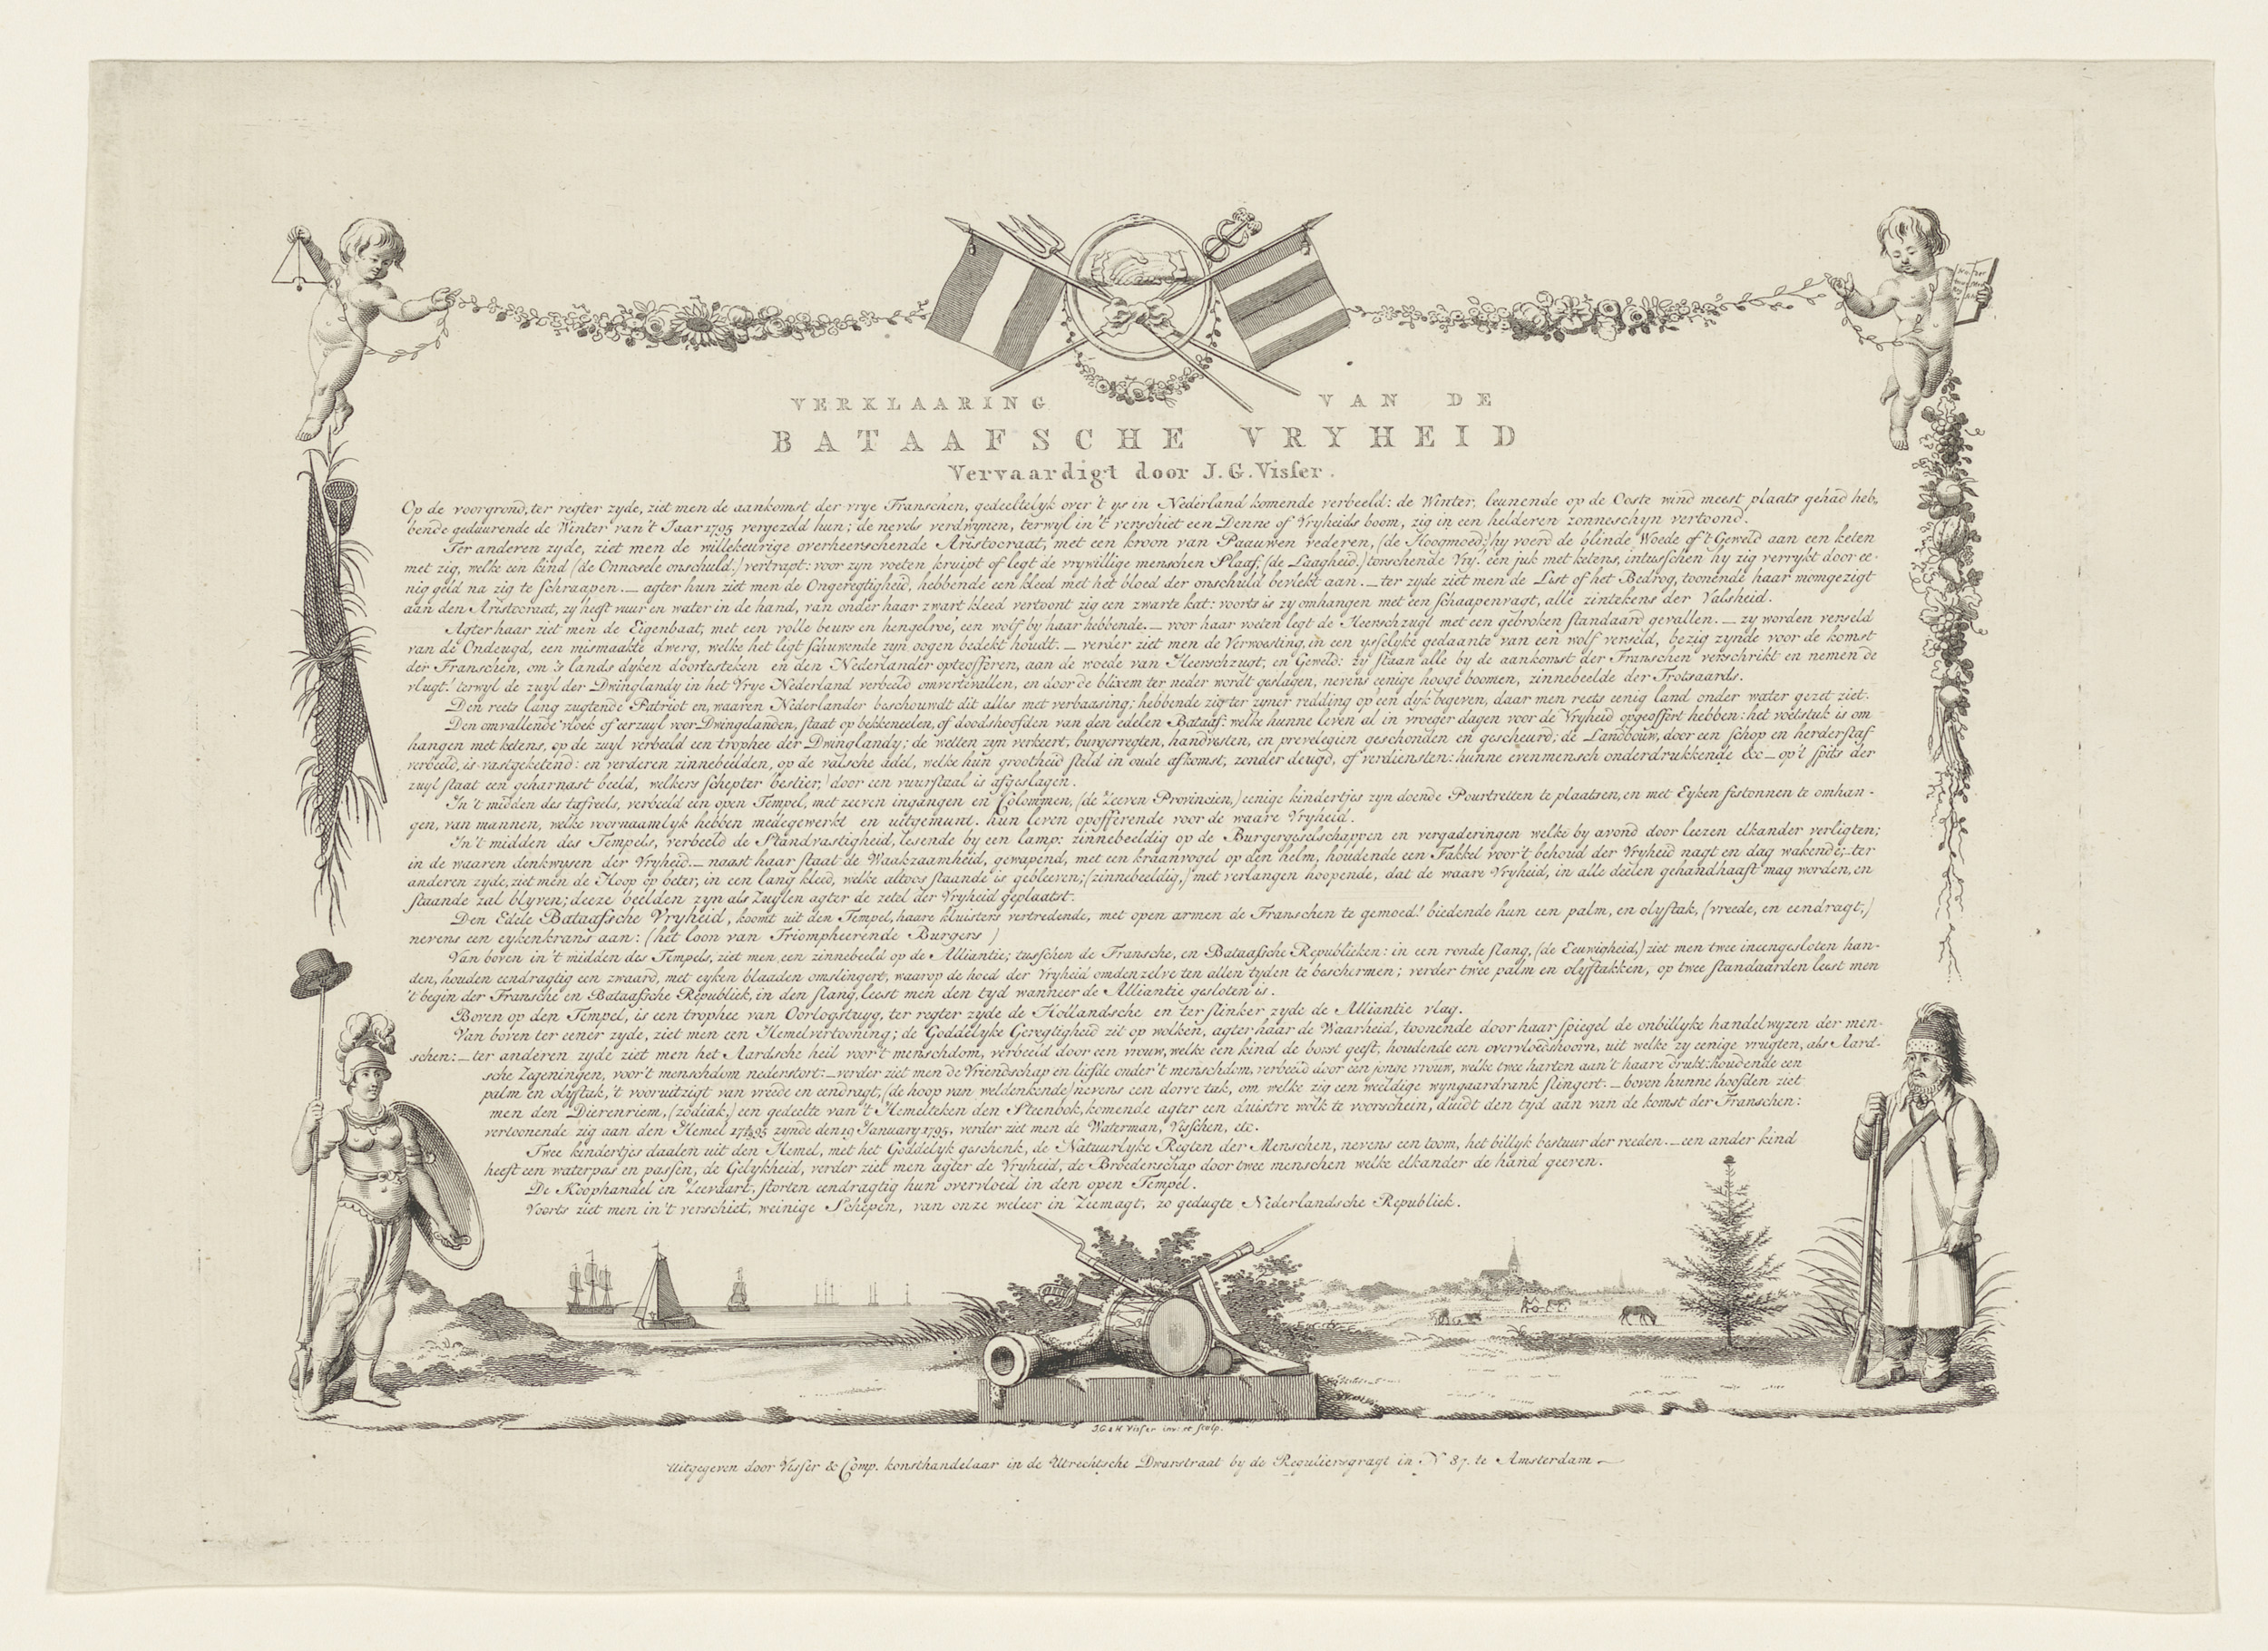 VERKLAARING VAN DE
BATAAFSCHE VRYHEID
Vervaardigt door J. G. Visser.
Op de voorgrond, ter regter zyde, ziet men de aankomst der vrye Franschen, gedeeltelyk over 't ys in Nederland komende verbeeld: de Winter, leunende op de Ooste wind meest plaats gehad heb-
bende geduurende de Winter van 't Jaar 1795 vergezeld hun; de nevels verdwynen, terwyl in 't verschiet een Denne of Vryheids boom, zig in een helderen zonneschyn vertoond.
Ter anderen zyde, ziet men de willekeurige overheerschende Aristocraat, met een kroon van Paauwen vederen, (de Hoogmoed;) hy voerd de blinde Woede of 't Geweld aan een keten
met zig, welke een kind (de Onnosele onschuld.) vertrapt: voor zyn voeten kruipt of legt de vrywillige menschen Slaaf, (de Laagheid,) tonschende Vry! een juk met ketens, intusschen hy zig verrykt door ee-
nig geld na zig te schraapen. — agter hun ziet men de Ongeregtigheid, hebbende een kleed met het bloed der onschuld bevlekt aan. — ter zyde ziet men de List of het Bedrog, toonende haar momgezigt
aan den Aristocraat, zy heeft vuur en water in de hand, van onder haar zwart kleed vertoont zig een zwarte kat: voorts is zy omhangen met een schaapenvagt, alle zintekens der Valsheid.
Agter haar ziet men de Eigenbaat, met een volle beurs en hengelroe, een wolf by haar hebbende. — voor haar voeten legt de Heerschzugt met een gebroken standaard gevallen. — zy worden verzeld
van de Ondeugd, een mismaakte dwerg, welke het ligt schuwende zyn oogen bedekt houdt. — verder ziet men de Verwoesting, in een ysselyke gedaante van een wolf verzeld, bezig zynde voor de komst
der Franschen, om 's lands dyken doortesteken en den Nederlander opteofferen, aan de woede van Heerschzugt, en Geweld: zy staan alle by de aankomst der Franschen verschrikt en nemen de
vlugt! terwyl de zuyl der Dwinglandy in het Vrye Nederland verbeeld omvertevallen, en door de blixem ter neder wordt geslagen, nevens eenige hooge boomen, zinnebeelde der Trotsaards.
Den reets lang zugtende Patriot en, waaren Nederlander beschouwdt dit alles met verbaasing; hebbende zig ter zyner redding op een dyk begeven, daar men reets eenig land onder water gezet ziet.
Den omvallende vloek of eerzuyl voor Dwingelanden, staat op bekkeneelen, of doodshoofden van den edelen Bataaf: welke hunne leven al in vroeger dagen voor de Vryheid opgeoffert hebben: het voetstuk is om
hangen met ketens, op de zuyl verbeeld een trophee der Dwinglandy; de wetten zyn verkeert; burgerregten, handvesten, en prevelegien geschonden en gescheurd; de Landbouw, door een schop en herderstaf
verbeeld, is vastgeketend: en verderen zinnebeelden, op de valsche adel, welke hun grootheid steld in oude afkomst, zonder deugd, of verdiensten: hunne evenmensch onderdrukkende &c — op 't spits der
zuyl staat een geharnast beeld, welkers schepter bestier,) door een vuurstaal is afgeslagen.
In 't midden des tafreels, verbeeld een open Tempel, met zeeven ingangen en Colommen, (de Zeeven Provincien,) eenige kindertjes zyn doende Pourtretten te plaatsen, en met Eyken festonnen te omhan-
gen, van mannen, welke voornaamlyk hebben medegewerkt en uitgemunt. hun leven opofferende voor de waare Vryheid.
In 't midden des Tempels, verbeeld de Standvastigheid, lesende by een lamp: zinnebeeldig op de Burgergeselschappen en vergaderingen welke by avond door leezen elkander verligten;
in de waaren denkwysen der Vryheid. — naast haar staat de Waakzaamheid, gewapend, met een kraanvogel op den helm, houdende een Fakkel voor 't behoud der Vryheid nagt en dag wakende; ter
anderen zyde, ziet men de Hoop op beter, in een lang kleed, welke altoos staande is gebleeven; (zinnebeeldig,) met verlangen hoopende, dat de waare Vryheid, in alle deelen gehandhaaft mag worden, en
staande zal blyven; deeze beelden zyn als Zuylen agter de zetel der Vryheid geplaatst.
Den Edele Bataafsche Vryheid, koomt uit den Tempel, haare kluisters vertredende, met open armen de Franschen te gemoed! biedende hun een palm, en olyftak, (vreede, en eendragt,)
nevens een eykenkrans aan: (het loon van Triompheerende Burgers)
Van boven in 't midden des Tempels, ziet men een zinnebeeld op de Alliantie; tusschen de Fransche, en Bataafsche Republieken: in een ronde slang, (de Eeuwigheid,) ziet men twee ineengesloten han-
den, houden eendragtig een zwaard, met eyken blaaden omslingert, waarop de hoed der Vryheid omdenzelve ten allen tyden te beschermen; verder twee palm en olyftakken, op twee standaarden leest men
't begin der Fransche en Bataafsche Republiek, in den slang, leest men den tyd wanneer de Alliantie gesloten is.
Boven op den Tempel, is een trophee van Oorlogstuyg, ter regter zyde de Hollandsche en ter slinker zyde de Alliantie vlag.
Van boven ter eener zyde, ziet men een Hemelvertooning; de Goddelyke Geregtigheid zit op wolken, agter haar de Waarheid, toonende door haar spiegel de onbillyke handelwyzen der men-
schen: — ter anderen zyde ziet men het Aardsche heil voor 't menschdom, verbeeld door een vrouw, welke een kind de borst geeft, houdende een overvloedshoorn, uit welke zy eenige vrugten, als Aard-
sche Zegeningen, voor 't menschdom nederstort: — verder ziet men de Vriendschap en liefde onder 't menschdom, verbeeld door een jonge vrouw, welke twee harten aan 't haare drukt: houdende een
palm en olyftak, 't vooruitzigt van vrede en eendragt, (de hoop van weldenkende) nevens een dorre tak, om welke zig een weeldige wyngaardrank slingert. — boven hunne hoofden ziet
men den Dierenriem, (zodiak,) een gedeelte van 't Hemelteken den Steenbok, komende agter een duistre wolk te voorschein, duidt den tyd aan van de komst der Franschen:
vertoonende zig aan den Hemel zynde den 19 January 1795, verder ziet men de Waterman, Visschen, etc.
Twee kindertjes daalen uit den Hemel, met het Goddelyk geschenk, de Natuurlyke Regten der Menschen, nevens een toom, het billyk bestuur der reeden. — een ander kind
heeft een waterpas en passen, de Gelykheid, verder ziet men agter de Vryheid, de Broederschap door twee menschen welke elkander de hand geeven.
De Koophandel en Zeevaart, storten eendragtig hun overvloed in den open Tempel.
Voorts ziet men in 't verschiet, weinige Schepen, van onze weleer in Zeemagt, zo gedugte Nederlandsche Republiek.
J.G & H Visser inv: et sculp.
Uitgegeven door Visser & Comp. konsthandelaar in de Utrechtsche Dwarstraat by de Reguliersgragt in N 87. te Amsterdam